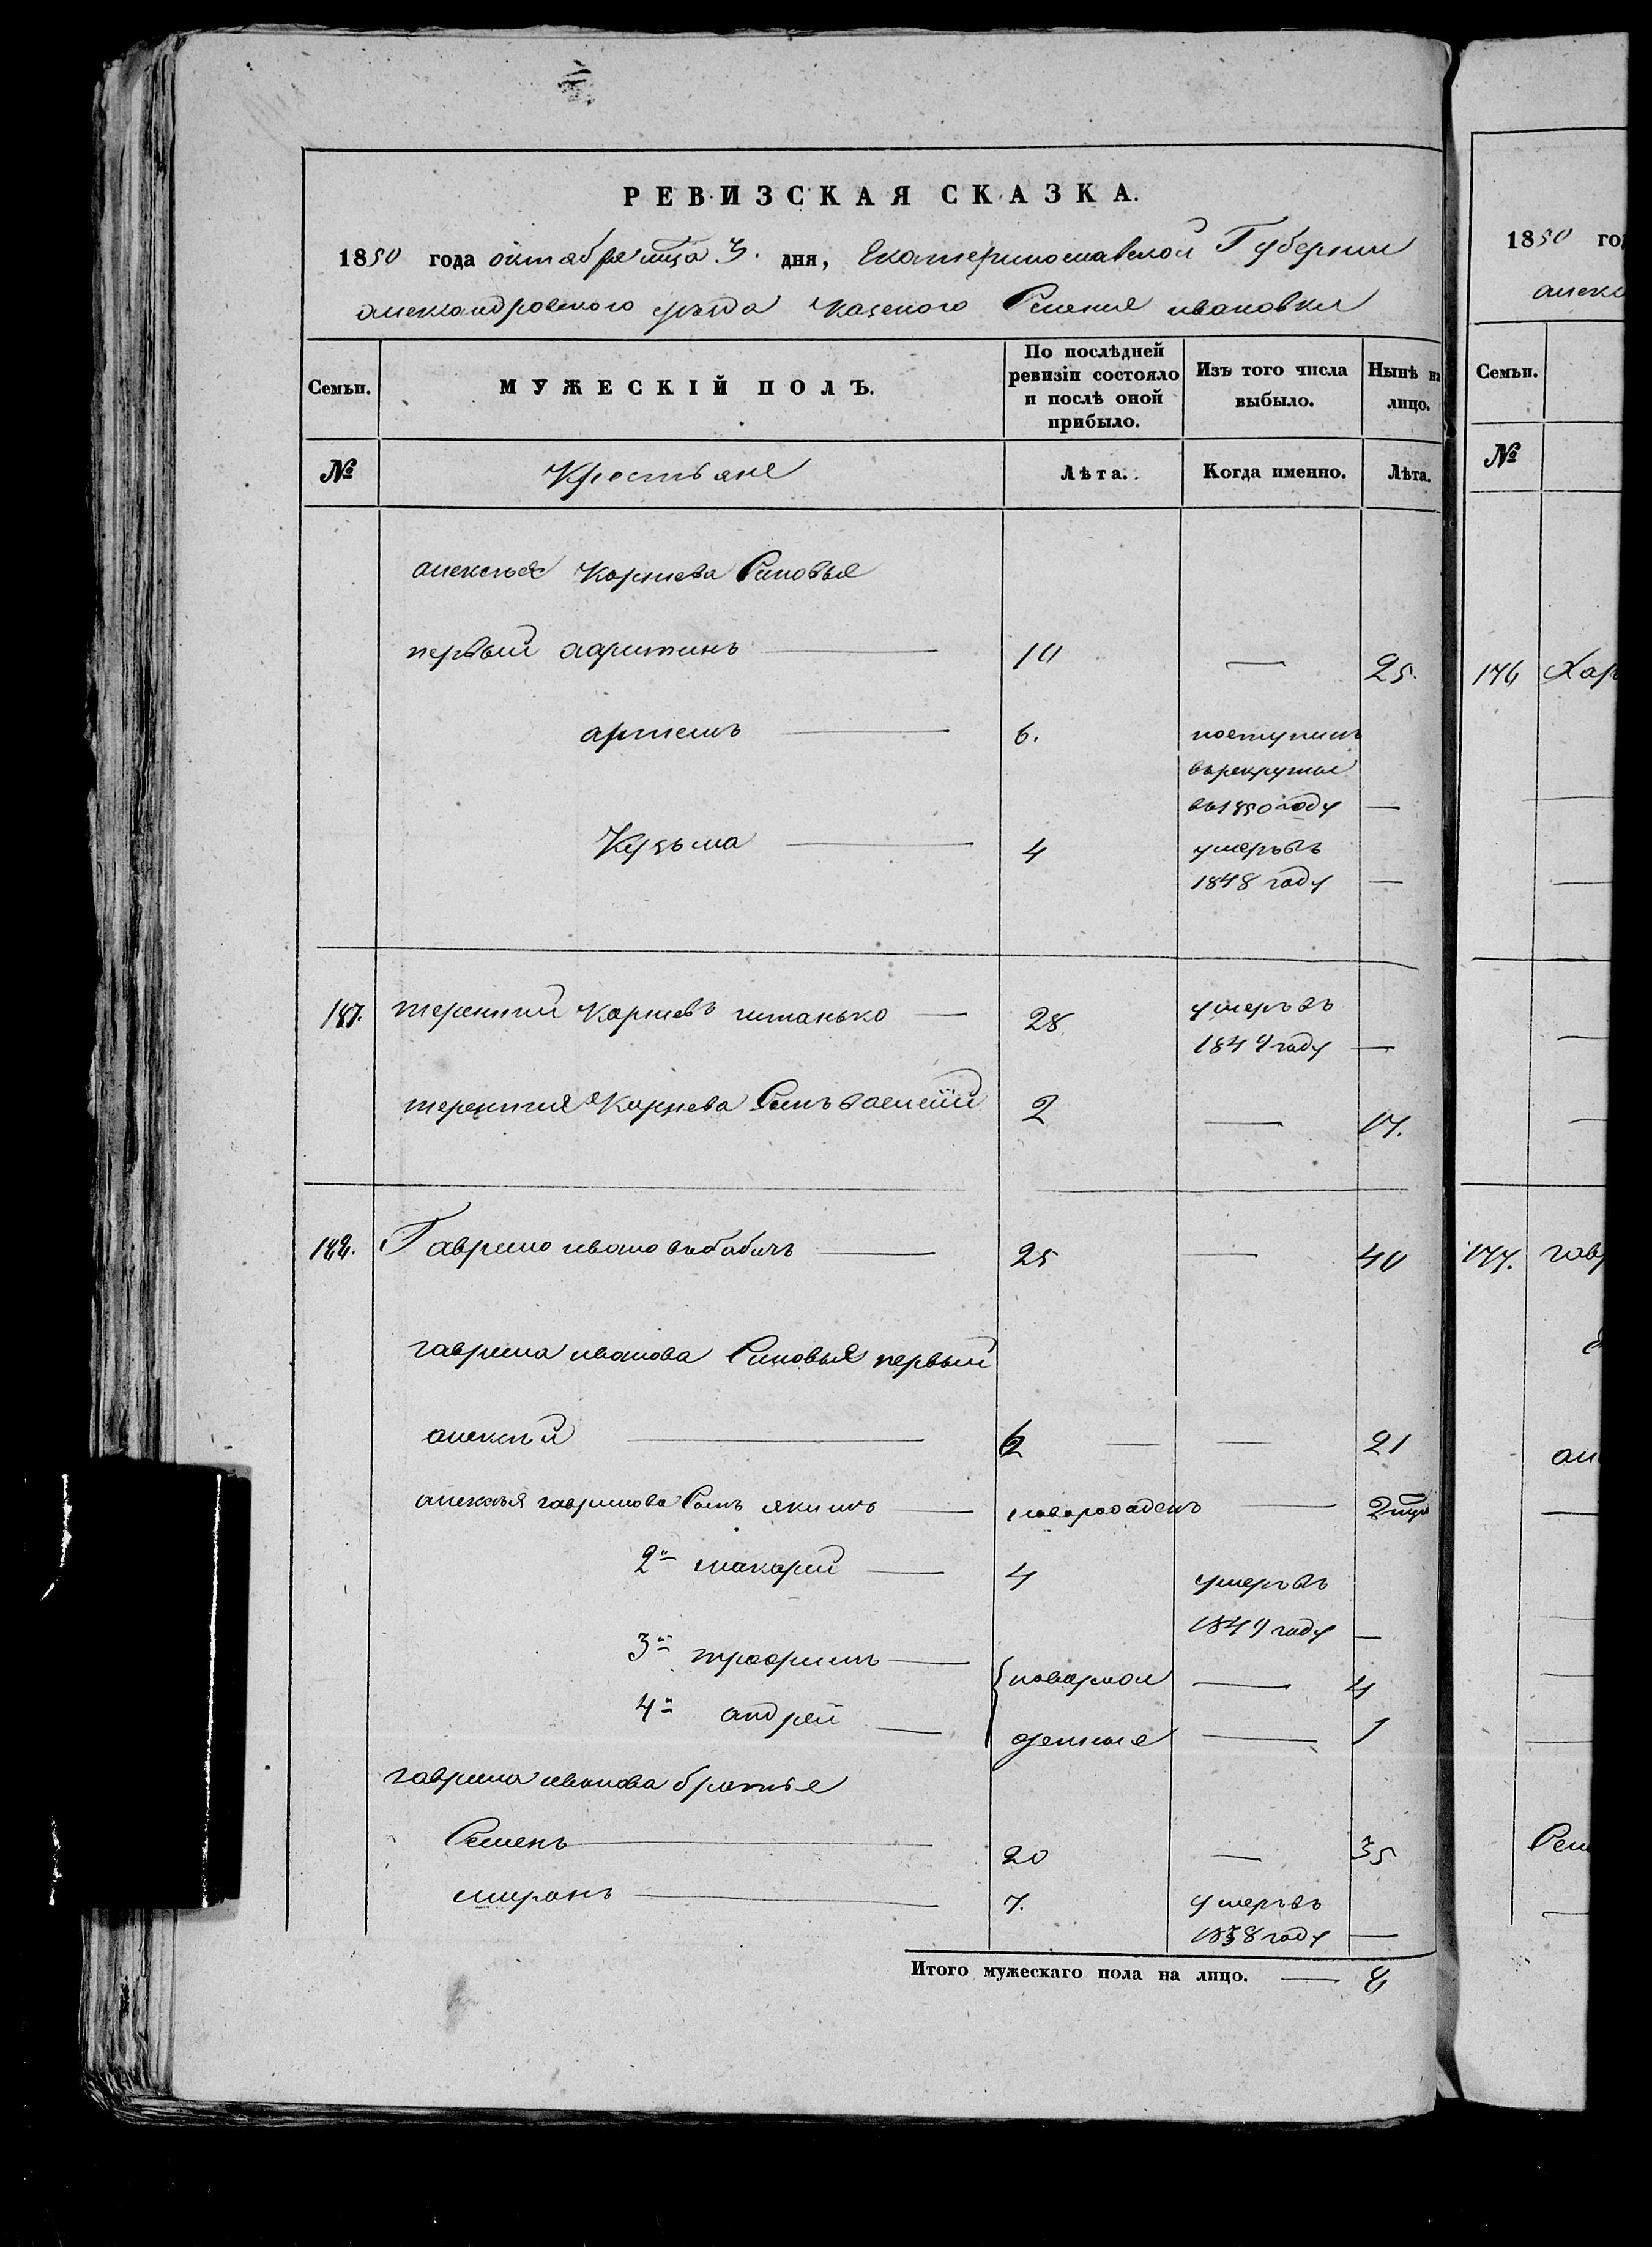 РЕВИЗСКАЯ СКАЗКА.
1850 года октября мца 3. дня, Екатеринославской Губернии
александровского уезда казеного Селения ивановки
Семьи.
МУЖЕСКІЙ ПОЛЪ.
По послѣдней ревизіи состояло и послѣ оной прибыло.
Изъ того числа выбыло.
Нынѣ на лицо.
№
Крестьяне
Лѣта.
Когда именно.
Лѣта.
алексея Корнева Синовья
первый харитинъ — 10 — 25.
артемъ — 6. поступилъ
врекруты
в 1850 году —
Кузьма — 4 умеръ въ
1848 году —
187. терентий Корневъ — 28 умеръ въ
году —
терентия Корнева Синъ васелий 2 — 17.
188. Гаврило ивановъ бабичъ — 25 — 40
гаврила иванова Синовья первый
алексѣй — 6 — — 21
алексѣя гаврилова Синъ якимъ — новорожденъ — 2
2й макарий — 4 умеръ въ
году —
3й трофимъ — новорож — 4
4й андрей — денные — 1
гаврила иванова братья
Семенъ — 20 — 35
миронъ — 7. умеръ въ
1838 году —
Итого мужескаго пола на лицо. — 8
1850 го
алекс
Семьи.
№
176 Хар
177. гав
ал
Сем